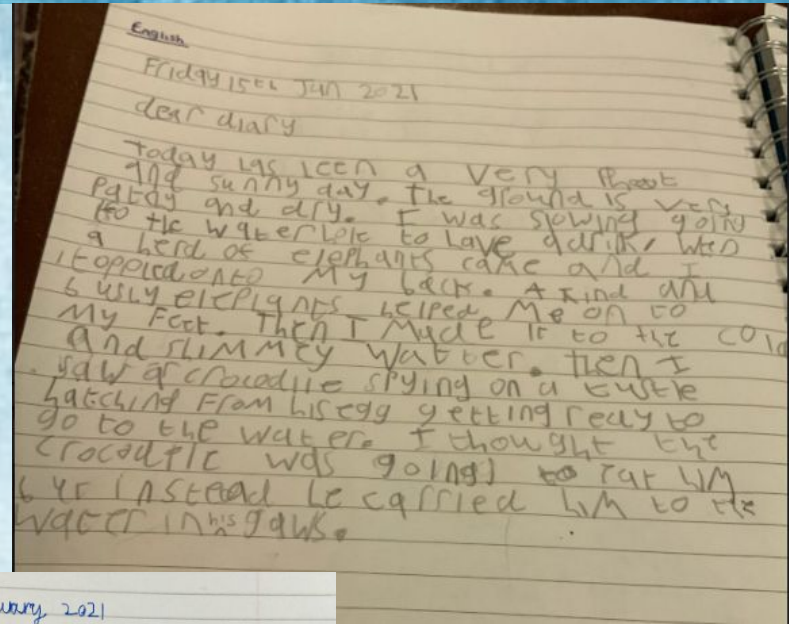 English
Friday 15th Jan 2021
dear diary
today has been a very
and sunny day. the ground is very
and dry. I was slowing going
to the water hole to have a drink, when
a herd of elephants came and I
toppled onto my back. A kind and
elephants helped me on to
my feet. Then I made it to the cold
and slimmey watter. then I
saw a crocodile spying on a
hatching from his egg getting ready to
go to the water. I thought the
was going to him
instead he carried him to the
water in his gaws.
2021